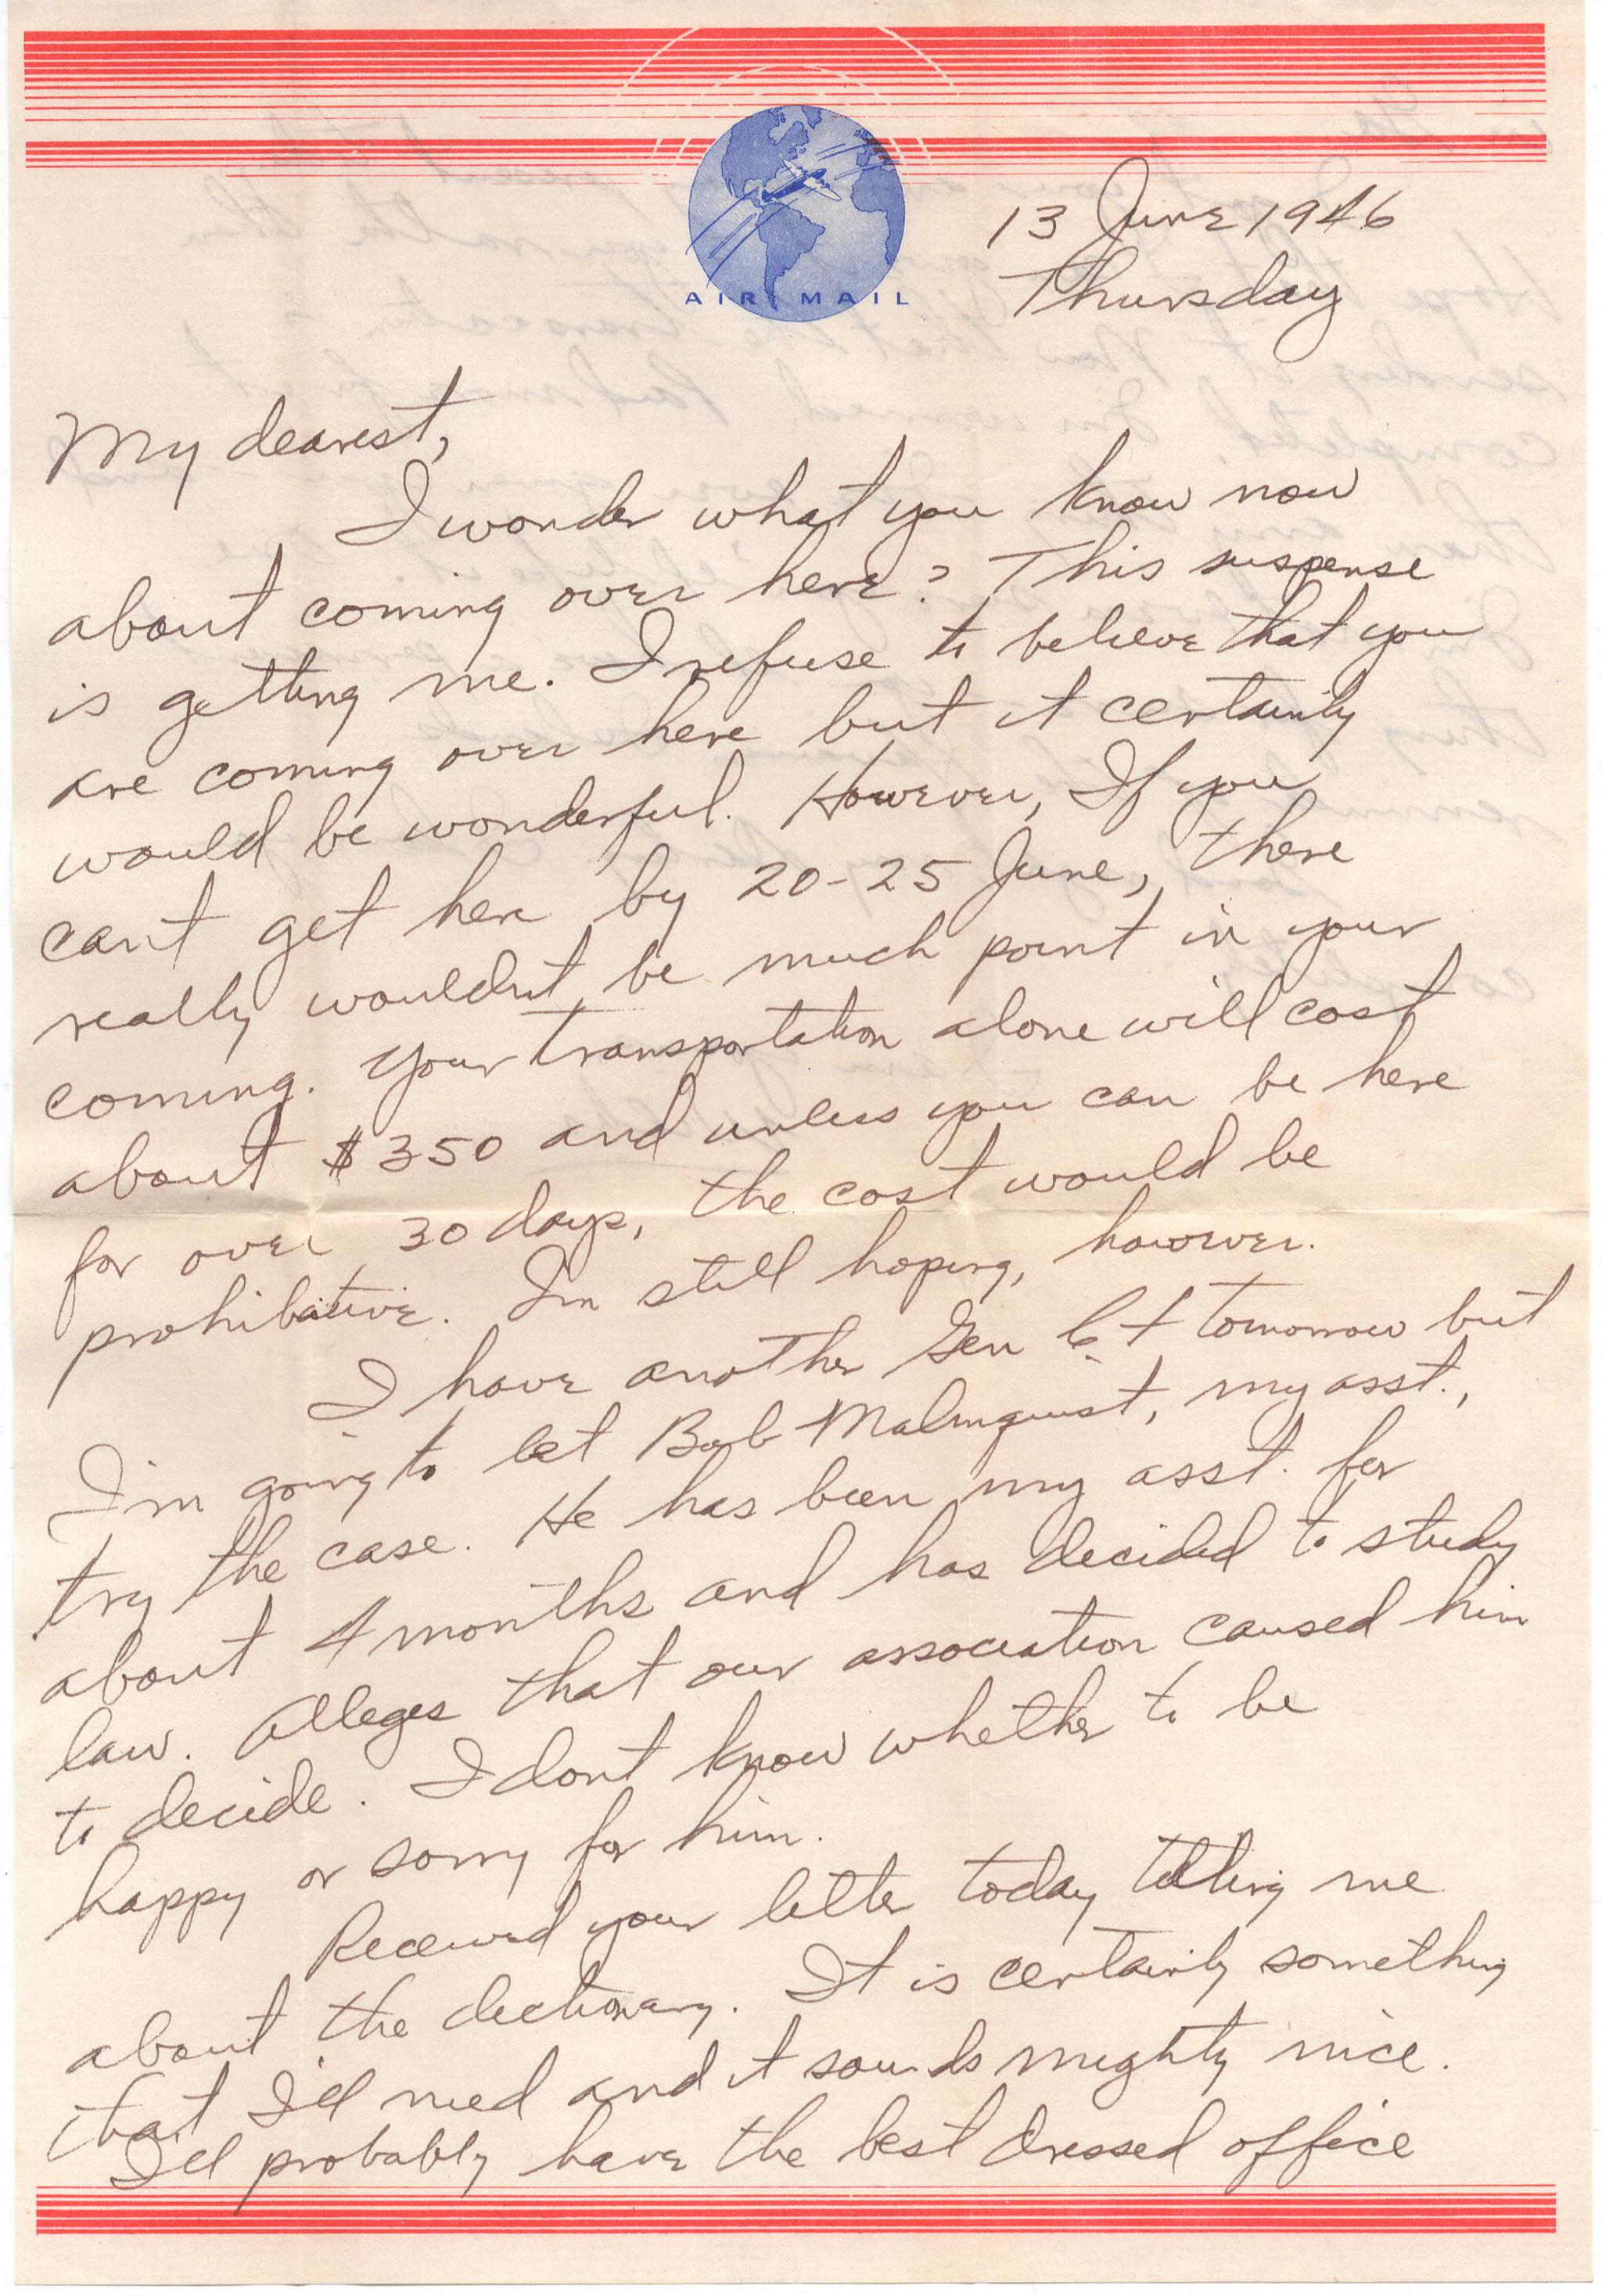 AIR MAIL
13 June 1946
Thursday
My dearest,
I wonder what you know now
about coming over here? This suspense
is getting me. I refuse to believe that you
are coming over here but it certainly
would be wonderful. However, If you
can't get here by 20-25 June, there
really wouldn't be much point in your
coming. Your transportation alone will cost
about $350 and unless you can be here
for over 30 days, the cost would be
prohibative. I'm still hoping, however.
I have another Gen Ct tomorrow but
I'm going to let Bob Malmquist, my asst.,
try the case. He has been my asst. for
about 4 months and has decided to study
law. Alleges that our association caused him
to decide. I dont know whether to be
happy or sorry for him.
Received your letter today telling me
about the dictionary. It is certainly something
that I'll need and it sounds mighty nice.
I'll probably have the best dressed office